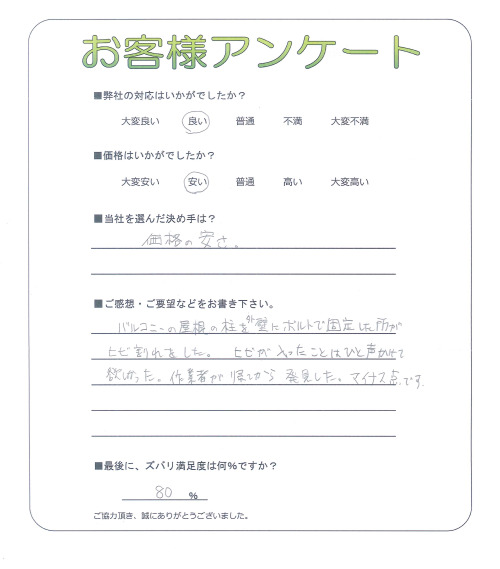 お客様アンケート
■弊社の対応はいかがでしたか?
大変良い 良い 普通 不満 大変不満
■価格はいかがでしたか?
大変安い 安い 普通 高い 大変高い
■当社を選んだ決め手は?
価格の安さ。
■ご感想・ご要望などをお書き下さい。
バルコニーの屋根の柱を外壁にボルトで固定した所が
ヒビ割れをした。 ヒビが入ったことはひと声かせて
欲しかった。作業者が帰ってから発見した。マイナス点です。
■最後に、ズバリ満足度は何%ですか?
80 %
ご協力頂き、誠にありがとうございました。